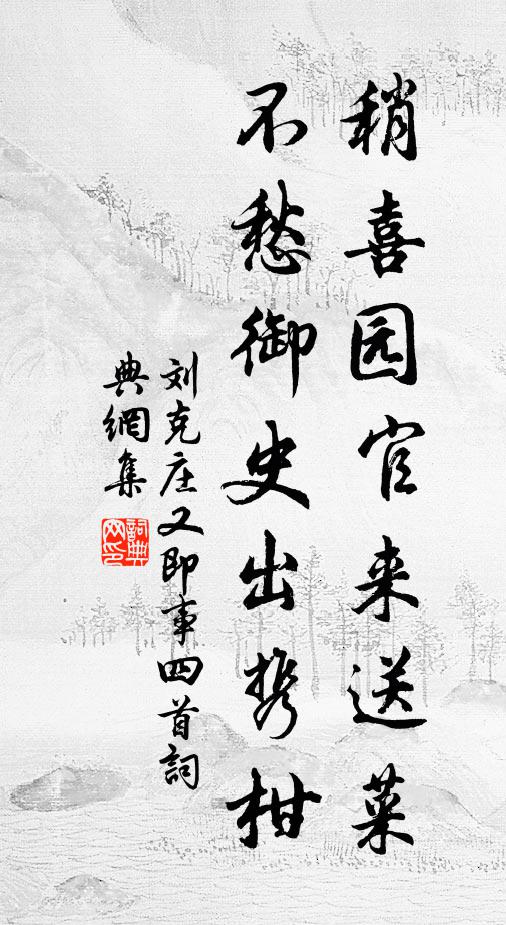 稍喜园官来送菜
不愁御史出携柑
刘克庄又即事四首詞
典網集
詞典網印